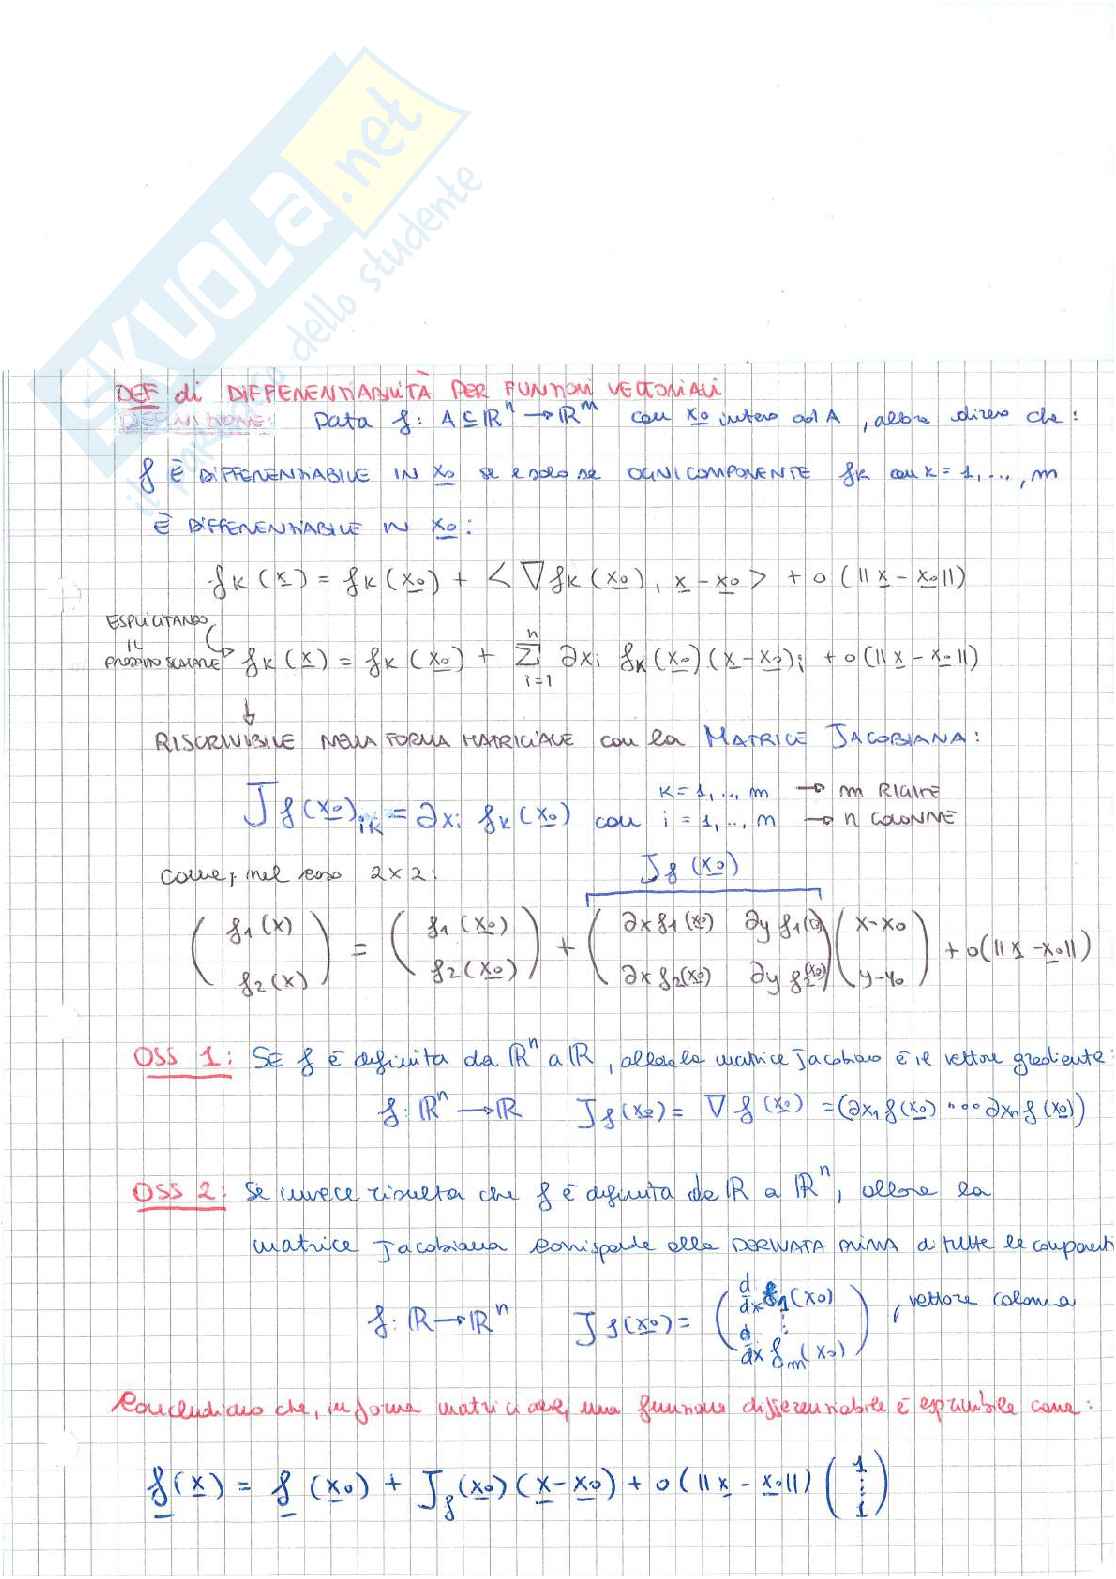 SKUOLA.net
il portico dello studente
DEF di DIFFERENZIABILITÀ PER FUNZIONI VETTORIALI
DEFINIZIONE: Data f: A ⊆ ℝⁿ → ℝᵐ con x₀ interno ad A, allora diremo che:
f È DIFFERENZIABILE IN x₀ se e solo se OGNI COMPONENTE fₖ con k = 1, ..., m
È DIFFERENZIABILE IN x₀:
fₖ(x) = fₖ(x₀) + <∇fₖ(x₀), x - x₀> + o(||x - x₀||)
ESPLICITANDO
IL
PRODOTTO SCALARE → fₖ(x) = fₖ(x₀) + Σ_{i=1}^{n} ∂xᵢ fₖ(x₀)(x - x₀)ᵢ + o(||x - x₀||)
↓
RISCRIVIBILE NELLA FORMA MATRICIALE con la MATRICE JACOBIANA:
k = 1, ... m → m RIGHE
J f(x₀)ᵢₖ = ∂xᵢ fₖ(x₀) con i = 1, .., n → n COLONNE
come, nel caso 2x2: J f(x₀)
(f₁(x) ; f₂(x)) = (f₁(x₀) ; f₂(x₀)) + (∂x f₁(x₀) ∂y f₁(x₀) ; ∂x f₂(x₀) ∂y f₂(x₀)) (x - x₀ ; y - y₀) + o(||x - x₀||)
OSS 1: SE f è definita da ℝⁿ a ℝ, allora la matrice Jacobiana è il vettore gradiente:
f: ℝⁿ → ℝ J f(x₀) = ∇f(x₀) = (∂x₁ f(x₀) ... ∂xₙ f(x₀))
OSS 2: Se invece risulta che f è definita da ℝ a ℝⁿ, allora la
matrice Jacobiana corrisponde alla DERIVATA PRIMA di tutte le componenti
f: ℝ → ℝⁿ J f(x₀) = (d/dx f₁(x₀) ⋮ d/dx fₘ(x₀)), vettore colonna
Concludiamo che, in forma matriciale, una funzione differenziabile è esprimibile come:
f(x) = f(x₀) + J_f(x₀)(x - x₀) + o(||x - x₀||) (1 ⋮ 1)